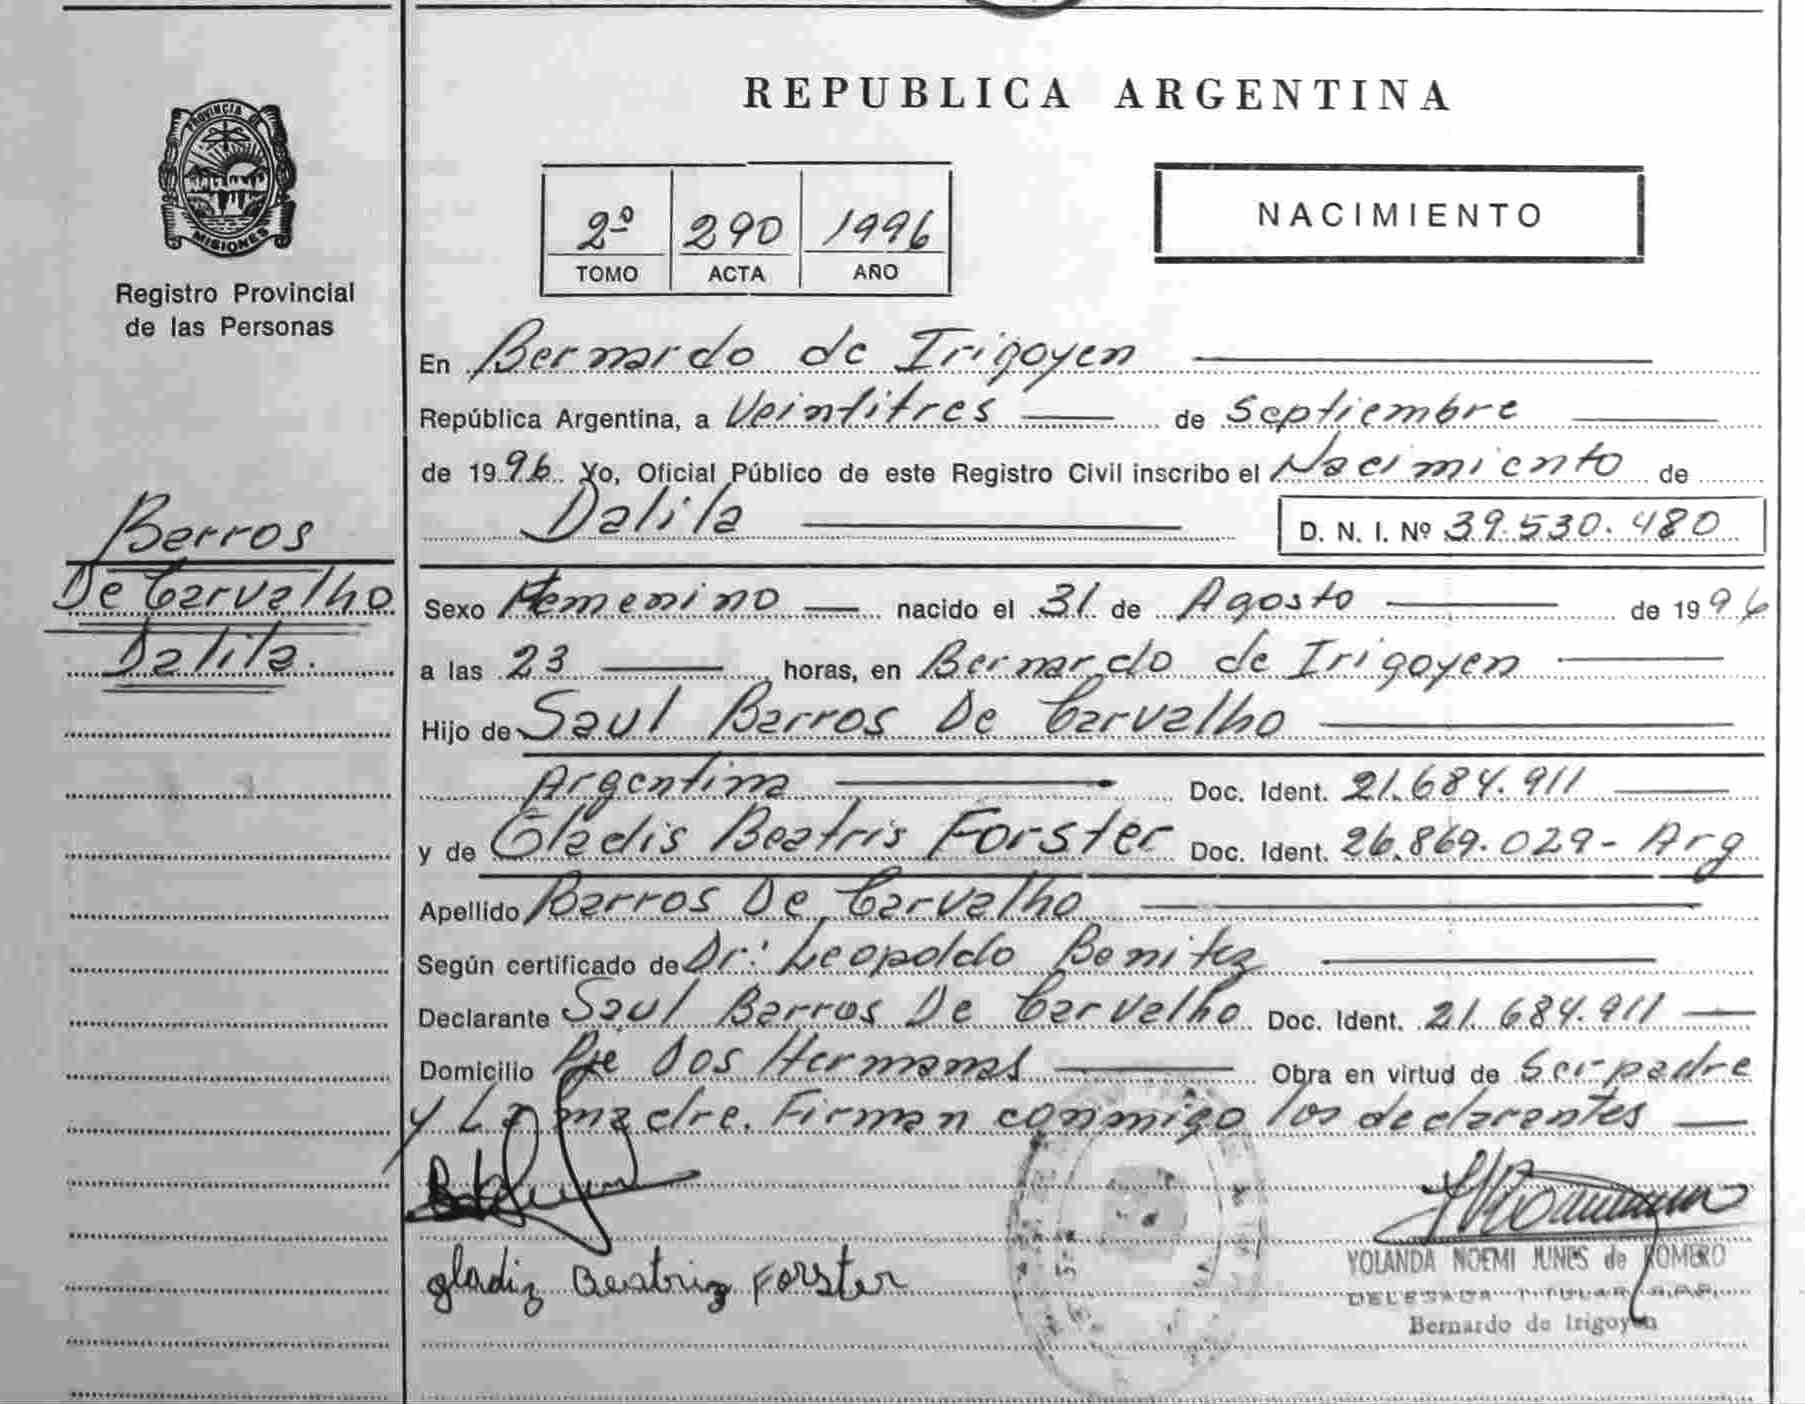 PROVINCIA DE
MISIONES
Registro Provincial
de las Personas
Barros
De Carvalho
Dalila.
REPUBLICA ARGENTINA
2º 290 1996
TOMO ACTA AÑO
NACIMIENTO
En Bernardo de Irigoyen
República Argentina, a Veintitres de Septiembre
de 1996 Yo, Oficial Público de este Registro Civil inscribo el Nacimiento de
Dalila D. N. I. Nº 39.530.480
Sexo Femenino nacido el 31 de Agosto de 1996
a las 23 horas, en Bernardo de Irigoyen
Hijo de Saul Barros De Carvalho
Argentina Doc. Ident. 21.684.911
y de Gladis Beatris Forster Doc. Ident. 26.869.029- Arg
Apellido Barros De Carvalho
Según certificado de Dr: Leopoldo Benitez
Declarante Saul Barros De Carvalho Doc. Ident. 21.684.911
Domicilio Pje Dos Hermanas Obra en virtud de Ser padre
y La madre. Firman conmigo los declarantes
gladiz Beatriz Forster
YOLANDA NOEMI JUNES de ROMERO
DELEGADA TITULAR R.P.P.
Bernardo de Irigoyen